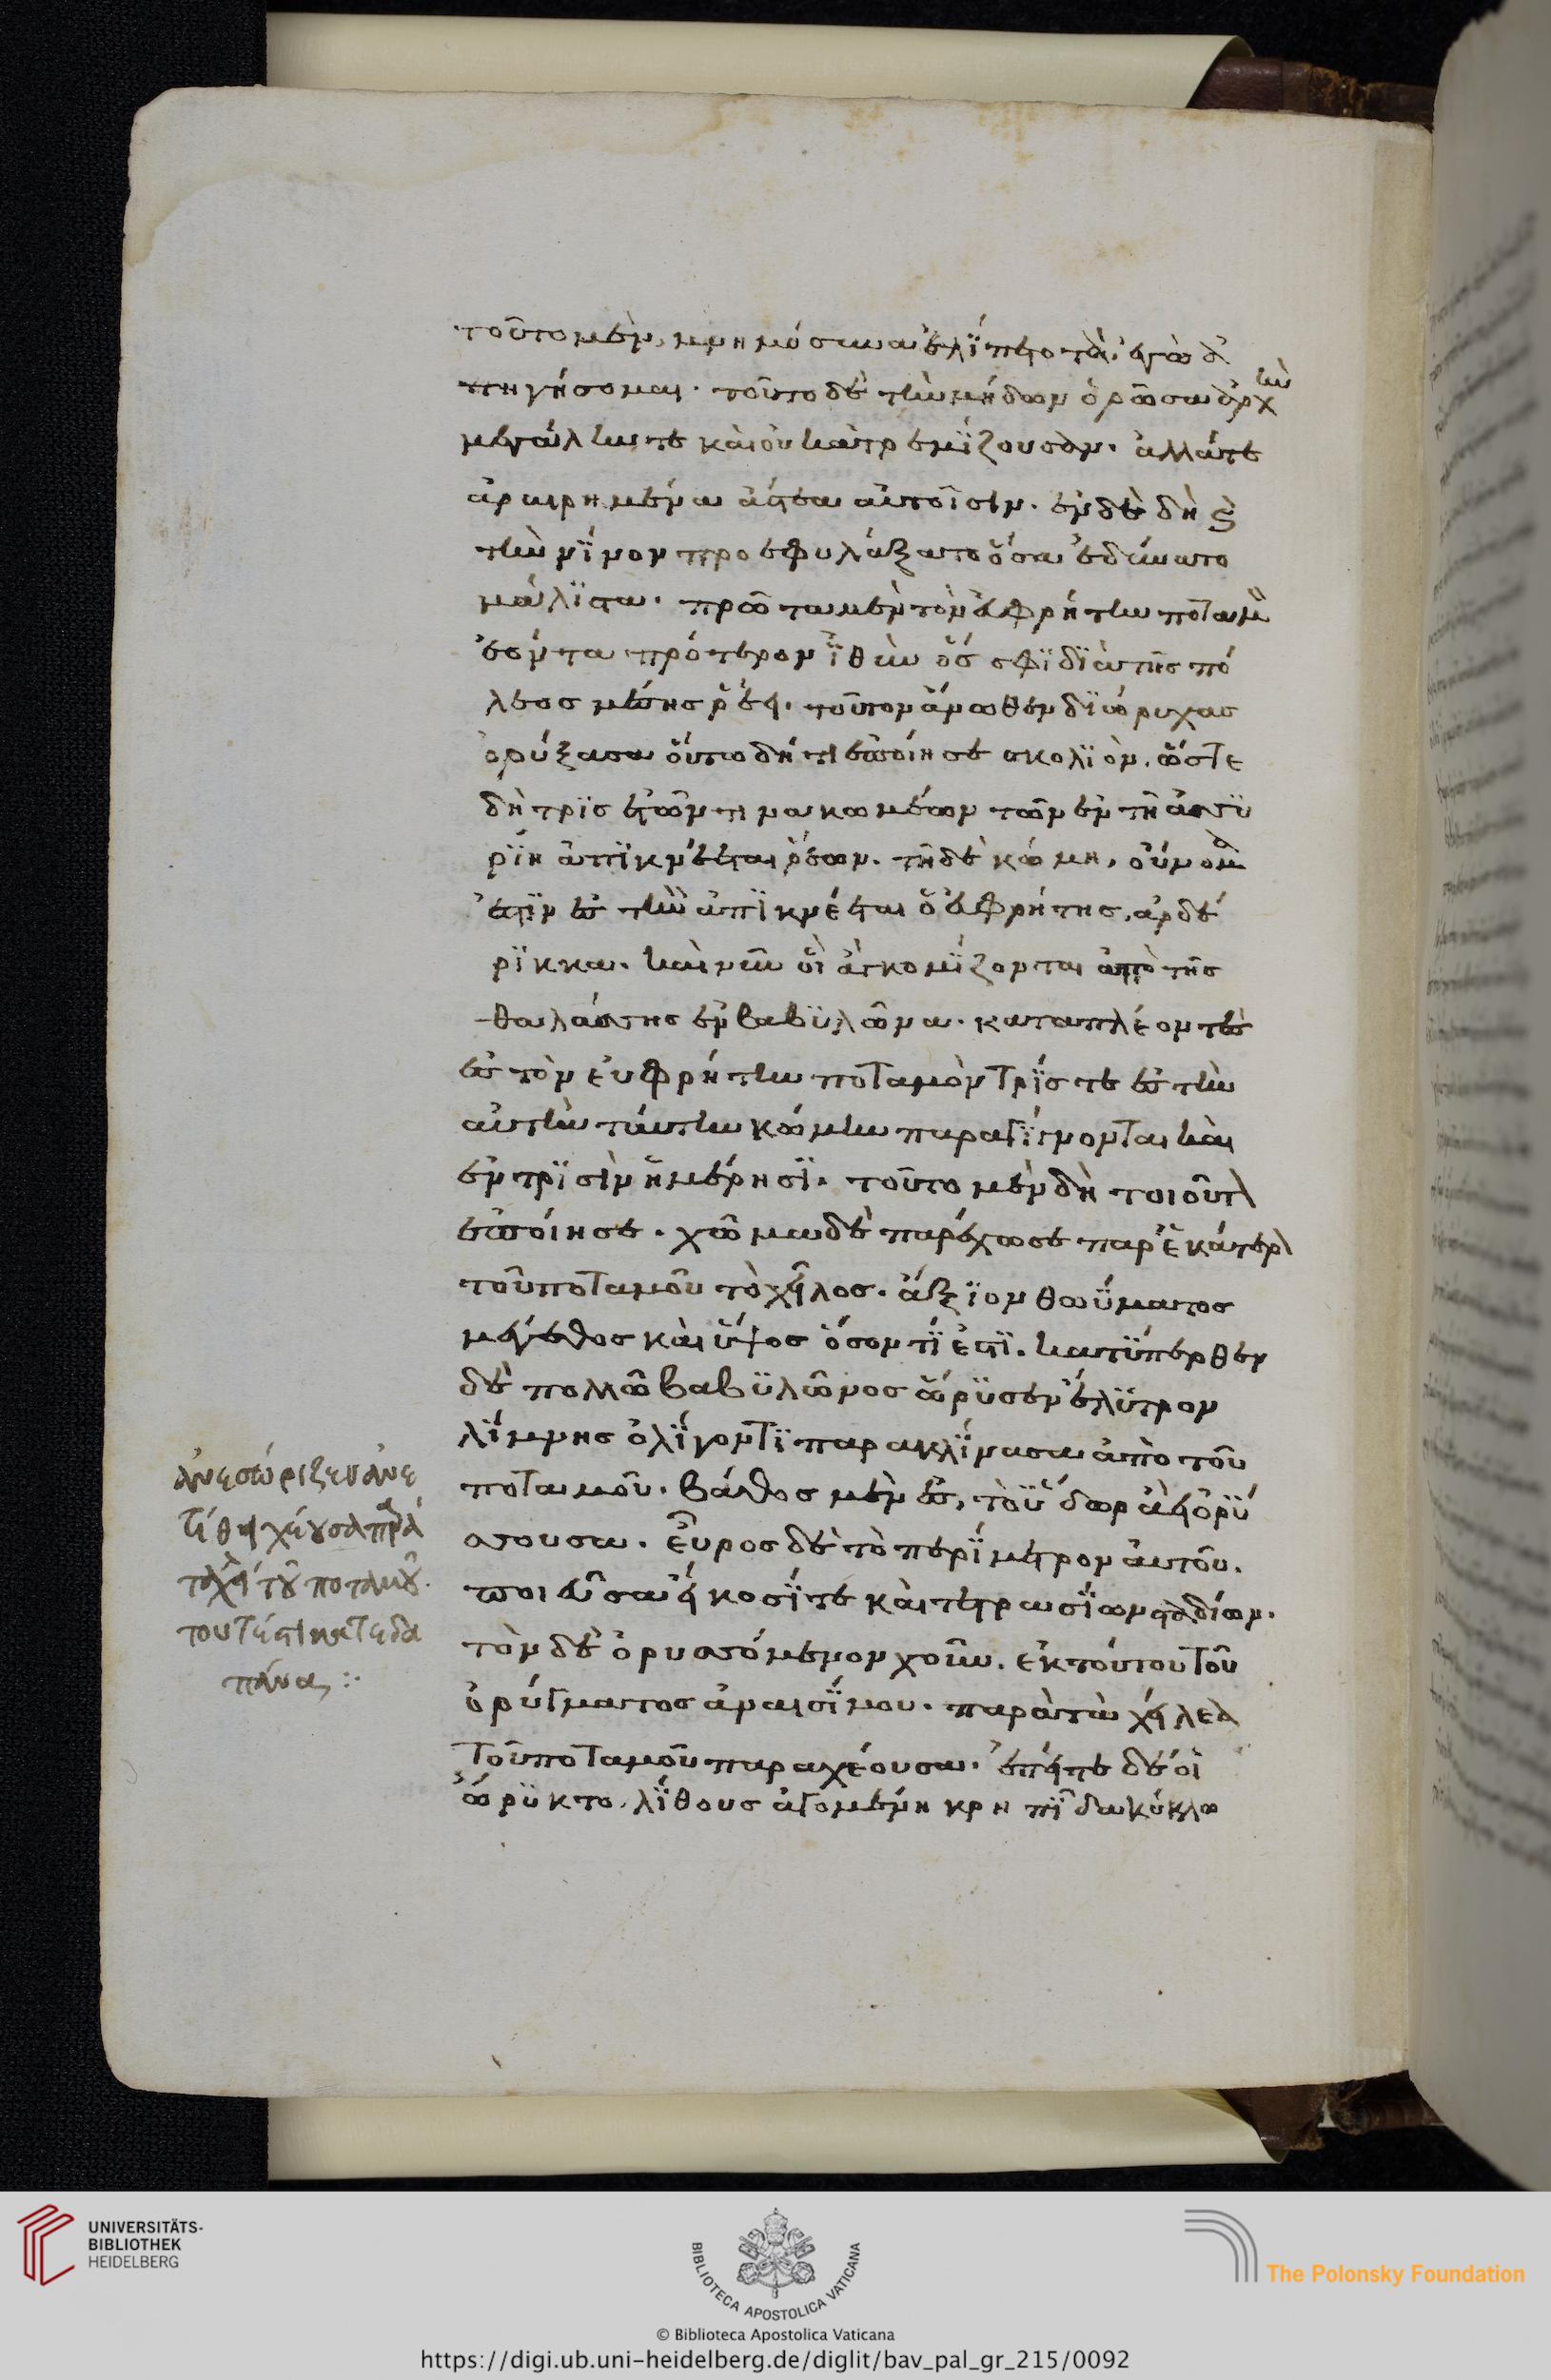 τοῦτο μὲν, μνημόσυνα ἐλΐπετο τὰ ἐγὼ ἀ
πηγήσομαι. τοῦτο δὲ τὴν μήδων ὁρῶσα ἀρχὴν
μεγάλην τε καὶ οὐκ ἀτρεμΐζουσαν. ἀλλάτε
ἀραιρημένα ἄστεα αὐτοῖσιν. ἐν δὲ δὴ καὶ
τὴν νΐνον προεφυλάξατο ὅσα ἐδύνατο
μάλϊστα. πρῶτα μὲν τὸν ἐυφρήτην ποταμὸν
ἐόντα πρότερον ἰθὺν ὅς σφϊ δϊὰ τῆς πό
λεος μέσης ῥέει. τοῦτον ἄνωθεν δϊώρυχας
ὀρύξασα οὕτω δή τι ἐποίησε σκολϊὸν. ὥστε
δὴ τρὶς ἐς τῶν τινα κωμέων τῶν ἐν τῆ ἀσσϋ
ρΐη ἀπϊκνέεται ῥέων. τῆ δὲ κώμη, οὔνομα
ἐστϊν ἐς τὴν ἀπϊκνέεται ὁ ἐυφρήτης, ἀρδέ
ρϊκκα. καὶ νῦν οἳ ἂν κομΐζονται ἀπὸ τῆς
θαλάσσης ἐν βαβϋλῶνα. καταπλέοντες
ἐς τὸν ἐυφρήτην ποταμὸν τρΐς τε ἐς τὴν
αὐτὴν ταύτην κώμην παραγΐνονται καὶ
ἐν τρϊσὶν ἡμέρησϊ. τοῦτο μὲν δὴ τοιοῦτο
ἐποίησε. χῶμα δὲ παρέχωσε παρ' ἑκάτερον
τοῦ ποταμοῦ τὸ χεῖλος. ἄξϊον θωΰματος
μέγεθος καὶ ὕψος ὅσον τΐ ἐστϊ. κατΰπερθεν
δὲ πολλῶ βαβϋλῶνος ὤρϋσεν ἔλϋτρον
λΐμνης ὀλΐγον τϊ παρακλΐνασα ἀπὸ τοῦ
ποταμοῦ. βάθος μὲν ἐς, τὸ ὕδωρ ἀεὶ ὀρϋ
σσουσα. εὖρος δὲ τὸ περΐμετρον αὐτοῦ.
ποιεῦσα εἴκοσΐ τε καὶ τετρακοσΐων σταδίων.
τὸν δὲ ὀρυσσόμενον χοῦν. ἐκ τούτου τοῦ
ὀρύγματος ἀναισΐμου. παρὰ τὰ χείλεα
τοῦ ποταμοῦ παραχέουσα. ἐπείτε δέ οἱ
ὀρώρϋκτο. λΐθους ἀγομένη κρηπῖδα κύκλω
ἀνεσώριζεν ἀνε
τίθει χέουσα παρὰ
τὰ χείλη τοῦ ποταμοῦ.
τουτέστι κατεδα
πάνα :·
UNIVERSITÄTS-
BIBLIOTHEK
HEIDELBERG
BIBLIOTECA APOSTOLICA VATICANA
The Polonsky Foundation
© Biblioteca Apostolica Vaticana
https://digi.ub.uni-heidelberg.de/diglit/bav_pal_gr_215/0092